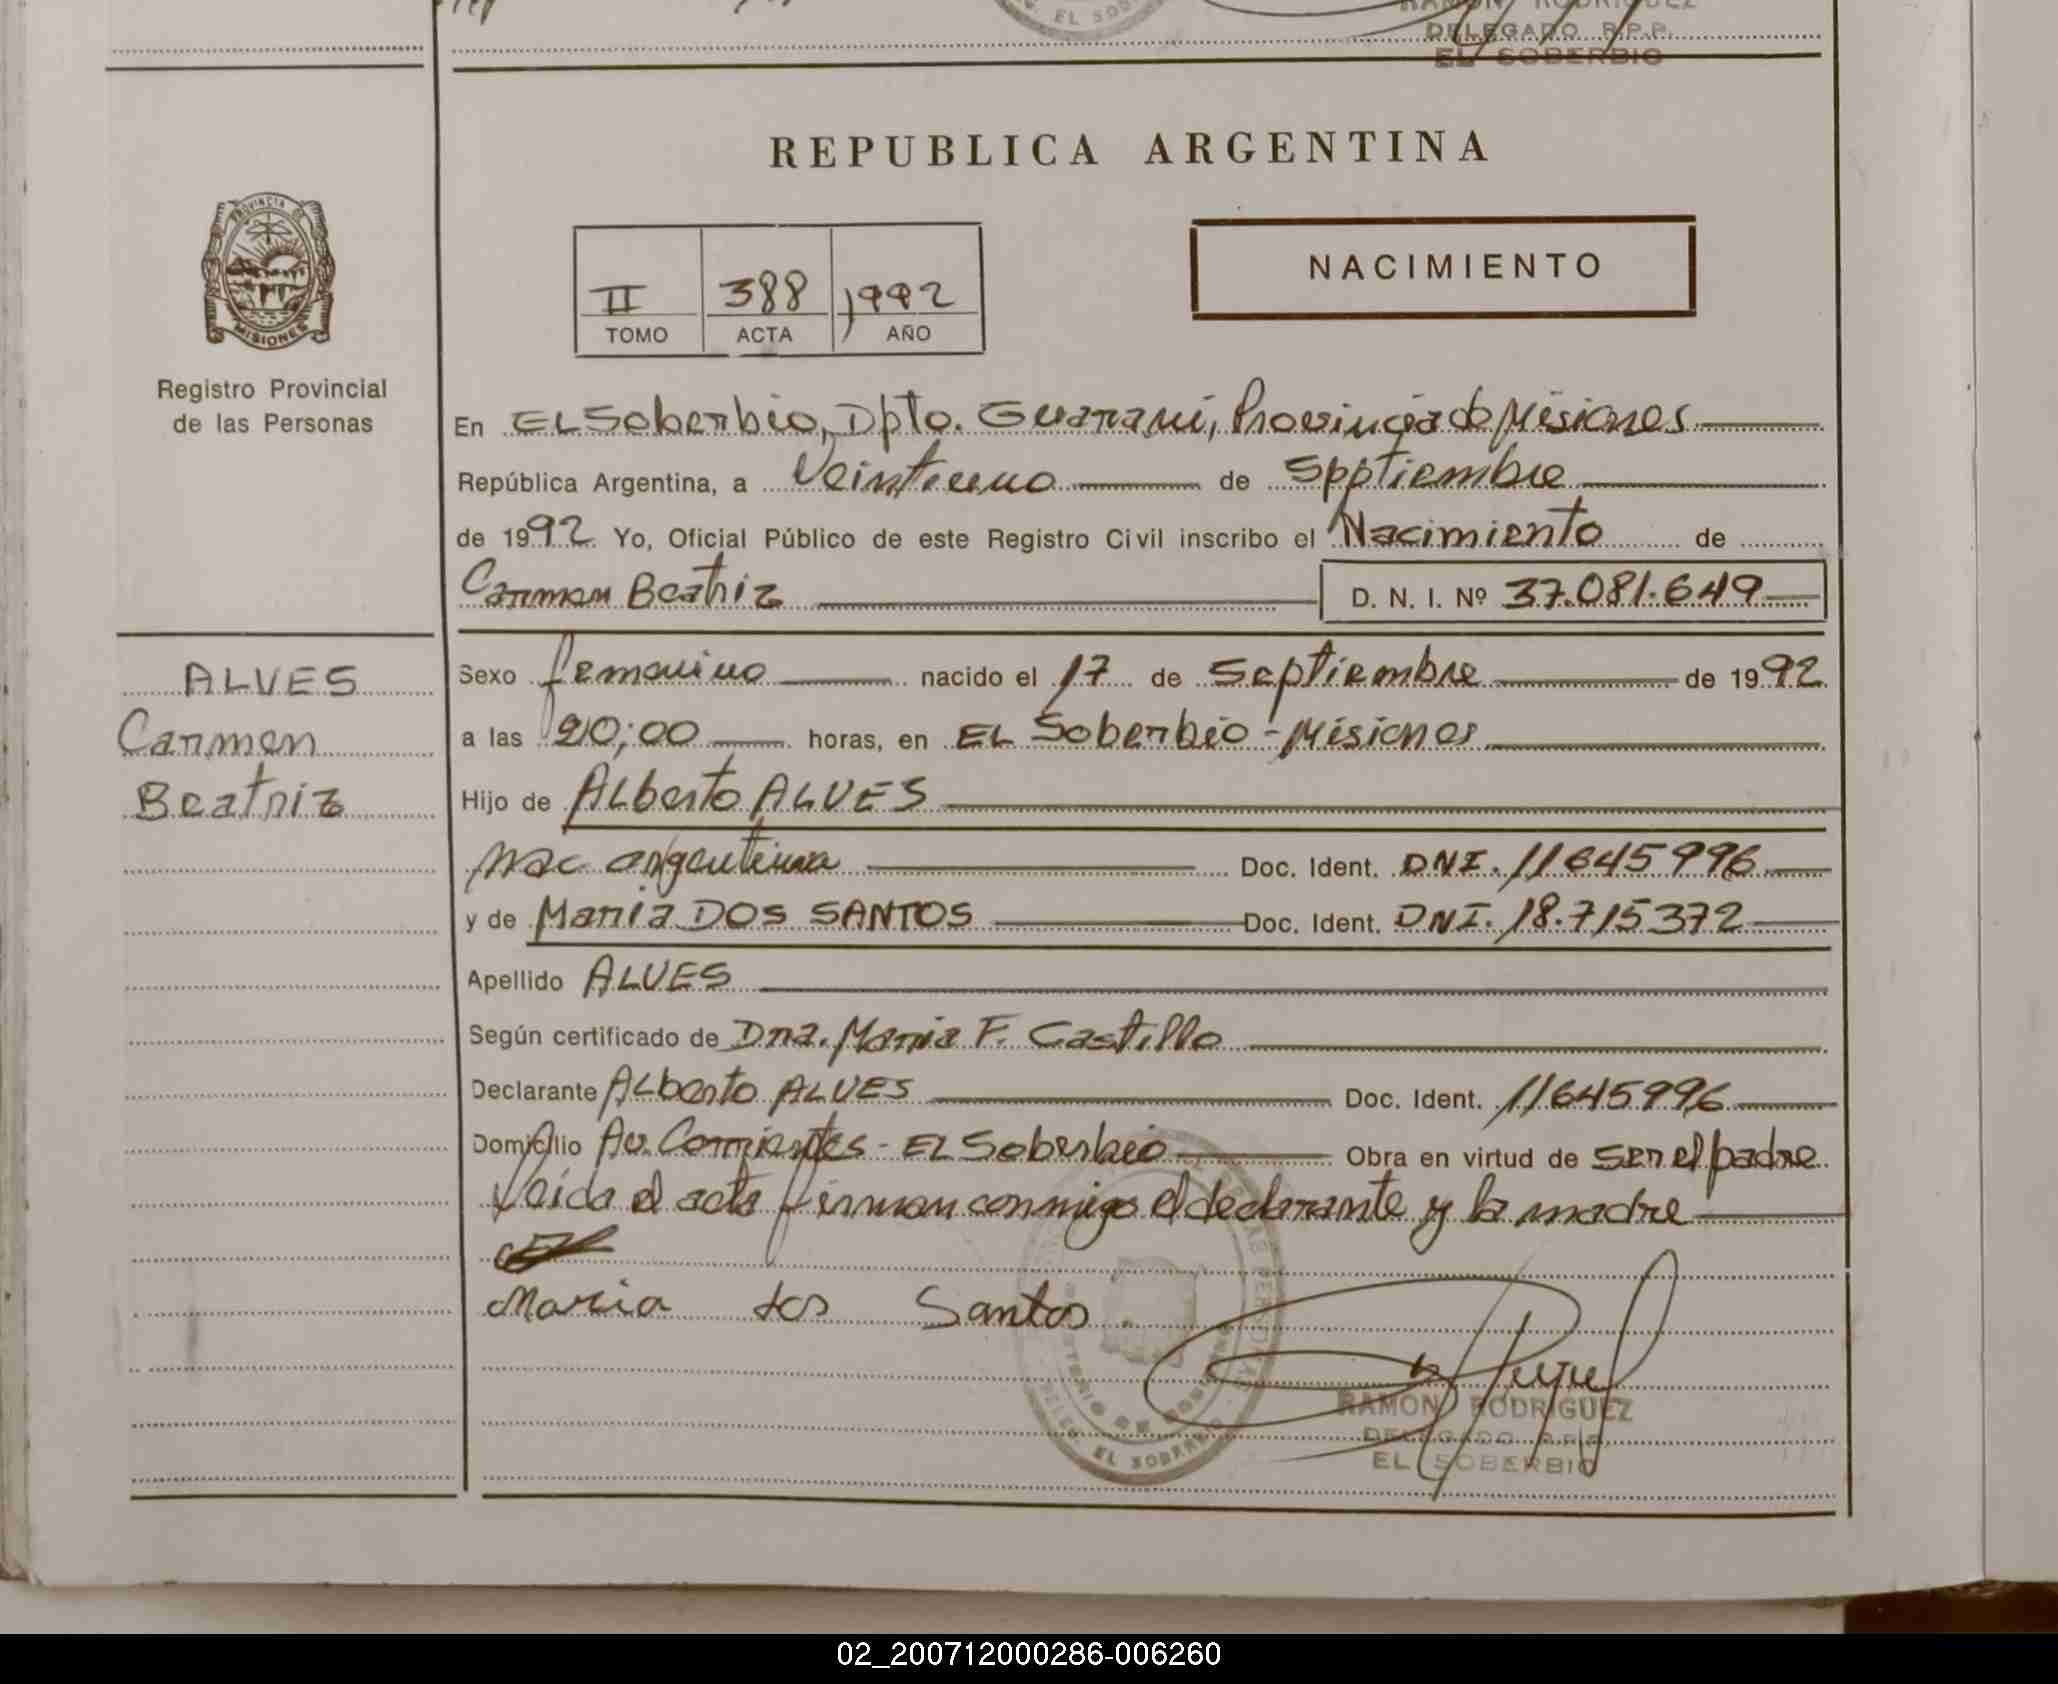 EL SOBERBIO
RAMON RODRIGUEZ
DELEGADO R.P.P.
EL SOBERBIO
PROVINCIA DE
MISIONES
Registro Provincial
de las Personas
ALVES
Carmen
Beatriz
REPUBLICA ARGENTINA
II 388 1992
TOMO ACTA AÑO
NACIMIENTO
En EL Soberbio, Dpto. Guaraní, Provincia de Misiones
República Argentina, a Veintiuno de Spptiembre
de 1992 Yo, Oficial Público de este Registro Civil inscribo el Nacimiento de
Carmen Beatriz D. N. I. Nº 37.081.649
Sexo femenino nacido el 17 de Septiembre de 1992
a las 20:00 horas, en EL Soberbio - Misiones
Hijo de ALberto ALVES
nac argentina Doc. Ident. DNI. 11645996
y de Maria DOS SANTOS Doc. Ident. DNI. 18.715372
Apellido ALVES
Según certificado de Dna. Maria F. Castillo
Declarante ALberto ALVES Doc. Ident. 11645996
Domicilio Av. Corrientes - EL Soberbio Obra en virtud de ser el padre
Leida el acta firman conmigo el declarante y la madre
Maria dos Santos
DELEG. EL SOBERBIO
RAMON RODRIGUEZ
DELEGADO R.P.P.
EL SOBERBIO
02_200712000286-006260